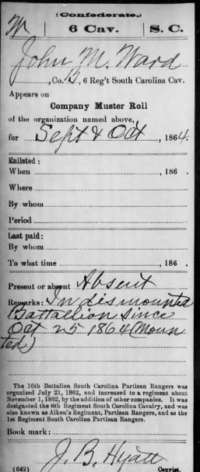 (Confederate.)
W 6 Cav. S. C.
John M. Ward
, Co. B, 6 Reg't South Carolina Cav.
Appears on
Company Muster Roll
of the organization named above,
for Sept & Oct, 1864.
Enlisted:
When , 186 .
Where
By whom
Period
Last paid:
By whom
To what time , 186 .
Present or absent Absent
Remarks: In dismounted
Battallion since
Oct 25 1864 (Moun
ted)
The 16th Battalion South Carolina Partisan Rangers was
organized July 21, 1862, and increased to a regiment about
November 1, 1862, by the addition of other companies. It was
designated the 6th Regiment South Carolina Cavalry, and was
also known as Aiken's Regiment, Partisan Rangers, and as the
1st Regiment South Carolina Partisan Rangers.
Book mark:
J. B. Hyatt
(642) Copyist.